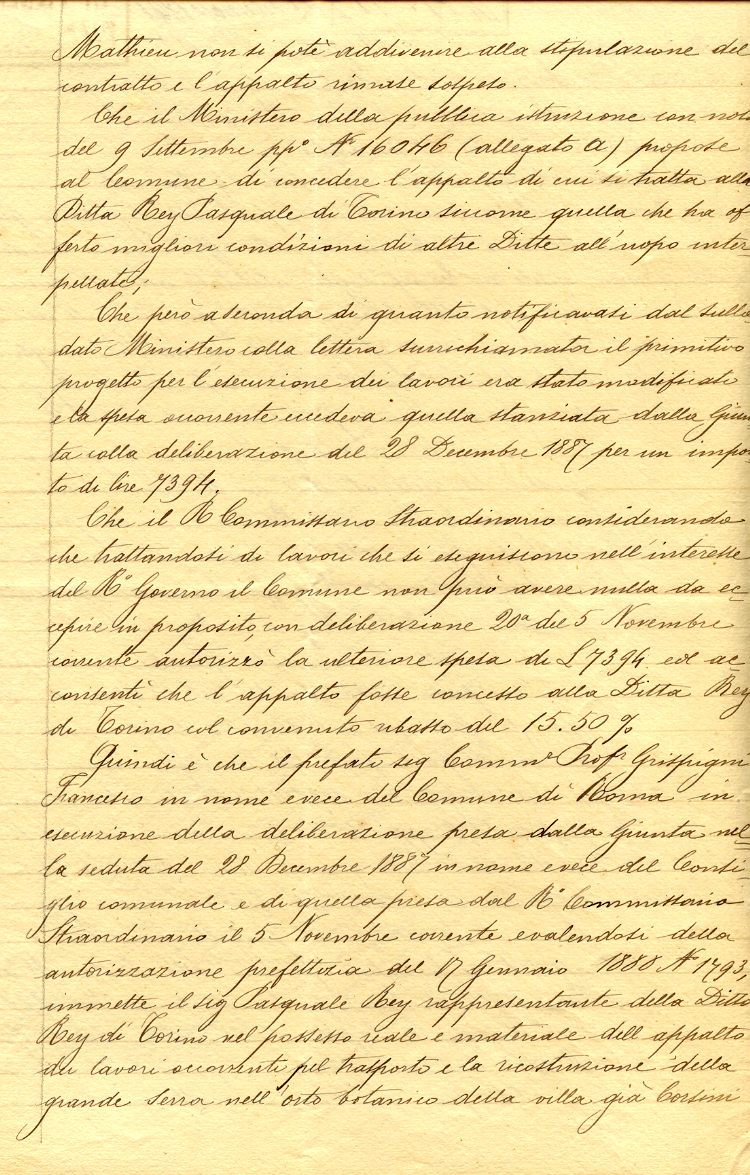 Mathieu non si potè addivenere alla stipulazione del
contratto e l'appalto rimase sospeso.
Che il Ministero della pubblica istruzione con nota
del 9 Settembre pp° N° 16046 (allegato A) propose
al Comune di concedere l'appalto di cui si tratta alla
Ditta Rey Pasquale di Torino siccome quella che ha of
ferto migliori condizioni di altre Ditte all'uopo inter=
pellate;
Che però a seconda di quanto notificavasi dal sullo
dato Ministero colla lettera surrichiamata il primitivo
progetto per l'esecuzione dei lavori era stato modificato
e la spesa occorrente eccedeva quella stanziata dalla Giun
ta colla deliberazione del 28 Decembre 1887 per un impor
to di lire 7394.
Che il R Commissario Straordinario considerando
che trattandosi di lavori che si eseguiscono nell'interesse
del R° Governo il Comune non può avere nulla da ec=
cepire in proposito, con deliberazione 20a del 5 Novembre
corrente autorizzò la ulteriore spesa di £ 7394 ed ac=
consentì che l'appalto fosse concesso alla Ditta Rey
di Torino col convenuto ribasso del 15.50 %
Quindi è che il prefato sig Comme Profr Grispigni
Francesco in nome e vece del Comune di Roma in
esecuzione della deliberazione presa dalla Giunta nel=
la seduta del 28 Decembre 1887 in nome e vece del Consi=
glio comunale e di quella presa dal R° Commissario
Straordinario il 5 Novembre corrente e valendosi della
autorizzazione prefettizia del 17 Gennaio 1888 N° 1793,
immette il sig Pasquale Rey rappresentante della Ditta
Rey di Torino nel possesso reale e materiale dell'appalto
dei lavori occorrenti pel trasporto e la ricostruzione della
grande Serra nell'orto botanico della villa già Corsini